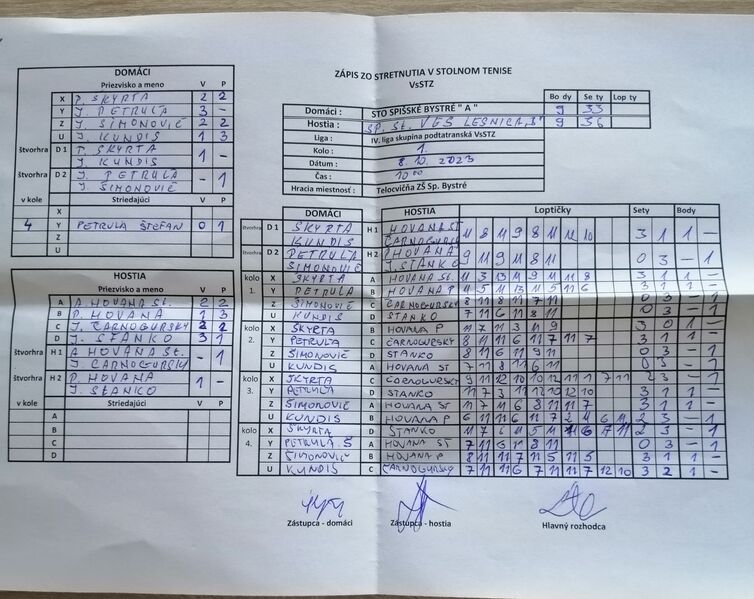 ZÁPIS ZO STRETNUTIA V STOLNOM TENISE
VsSTZ
DOMÁCI
Priezvisko a meno V P
X P. SKYRTA 2 2
Y J. PETRUĽA 3 -
Z J. ŠIMONOVIČ 2 2
U J. KUNDIS 1 3
štvorhra D 1 P. SKYRTA 1 -
J. KUNDIS
štvorhra D 2 J. PETRUĽA - 1
J. ŠIMONOVIČ
v kole Striedajúci
X
4 Y PETRUĽA ŠTEFAN 0 1
Z
U
HOSTIA
Priezvisko a meno V P
A A. HOVANA St. 2 2
B P. HOVANA 1 3
C J. ČARNOGURSKY 2 2
D J. STANKO 3 1
štvorhra H 1 A HOVANA St. - 1
J. ČARNOGURSKY
štvorhra H 2 P. HOVANA 1 -
J. STANKO
Striedajúci
A
B
C
D
Bo dy Se ty Lop ty
Domáci : STO SPIŠSKÉ BYSTRÉ " A " 9 33
Hostia : SP. St. VES LESNICA "B" 9 36
Liga : IV. liga skupina podtatranská VsSTZ
Kolo : 1.
Dátum : 8. 10. 2023
Čas : 10 00
Hracia miestnosť : Telocvičňa ZŠ Sp. Bystré
DOMÁCI HOSTIA Loptičky Sety Body
štvorhra D 1 SKYRTA H 1 HOVANA ST 11 8 11 9 8 11 12 10 3 1 1 -
KUNDIS ČARNOGURSKY
štvorhra D 2 PETRUĽA H 2 P.HOVANA 9 11 9 11 8 11 0 3 - 1
ŠIMONOVIČ J. STANKO
kolo 1. X SKYRTA A HOVANA St. 11 3 13 11 9 11 11 8 3 1 1 -
Y PETRUĽA B HOVANA P 11 5 11 13 11 5 11 6 3 1 1 -
Z ŠIMONOVIČ C ČARNOGURSKY 8 11 8 11 7 11 0 3 - 1
U KUNDIS D STANKO 7 11 6 11 8 11 0 3 - 1
kolo 2. X SKYRTA B HOVANA P 11 7 11 3 11 9 3 0 1 -
Y PETRUĽA C ČARNOGURSKY 8 11 11 6 11 7 11 7 3 1 1 -
Z ŠIMONOVIČ D STANKO 8 11 6 11 9 11 0 3 - 1
U KUNDIS A HOVANA ST 7 11 8 11 6 11 0 3 - 1
kolo 3. X SKYRTA C ČARNOGURSKY 9 11 12 10 10 12 11 7 11 2 3 - 1
Y PETRUĽA D STANKO 11 7 3 11 12 10 12 10 3 1 1 -
Z ŠIMONOVIČ A HOVANA ST 11 7 11 6 8 11 11 7 3 1 1 -
U KUNDIS B HOVANA P 6 11 11 6 11 7 2 6 11 2 3 - 1
kolo 4. X SKYRTA D STANKO 11 7 6 11 5 11 11 6 2 3 - 1
Y PETRUĽA Š A HOVANA ST 7 11 6 11 8 11 0 3 - 1
Z ŠIMONOVIČ B HOVANA P 8 11 11 7 11 5 11 5 3 1 1 -
U KUNDIS C ČARNOGURSKY 7 11 11 6 7 11 11 7 12 10 3 2 1 -
Zástupca - domáci Zástupca - hostia Hlavný rozhodca